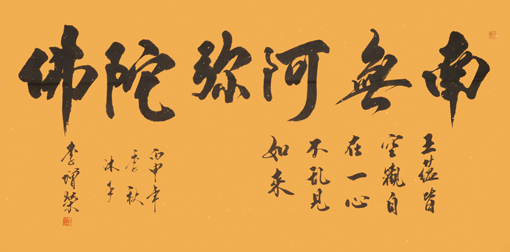 南無阿弥陀佛
五蕴皆
空觀自
在一心
不乱見
如来
丙申年
季秋
沐手